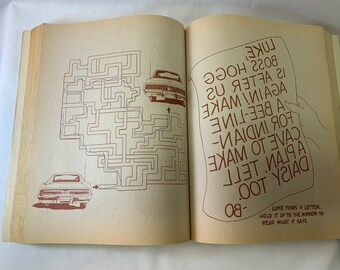 LUKE,
BOSS HOGG
IS AFTER US
AGAIN! MAKE
A BEE-LINE
FOR INDIAN
CAVE TO MAKE
A PLAN. TELL
DAISY, TOO.
-BO
LUKE FINDS A LETTER.
HOLD IT UP TO THE MIRROR TO
READ WHAT IT SAYS.